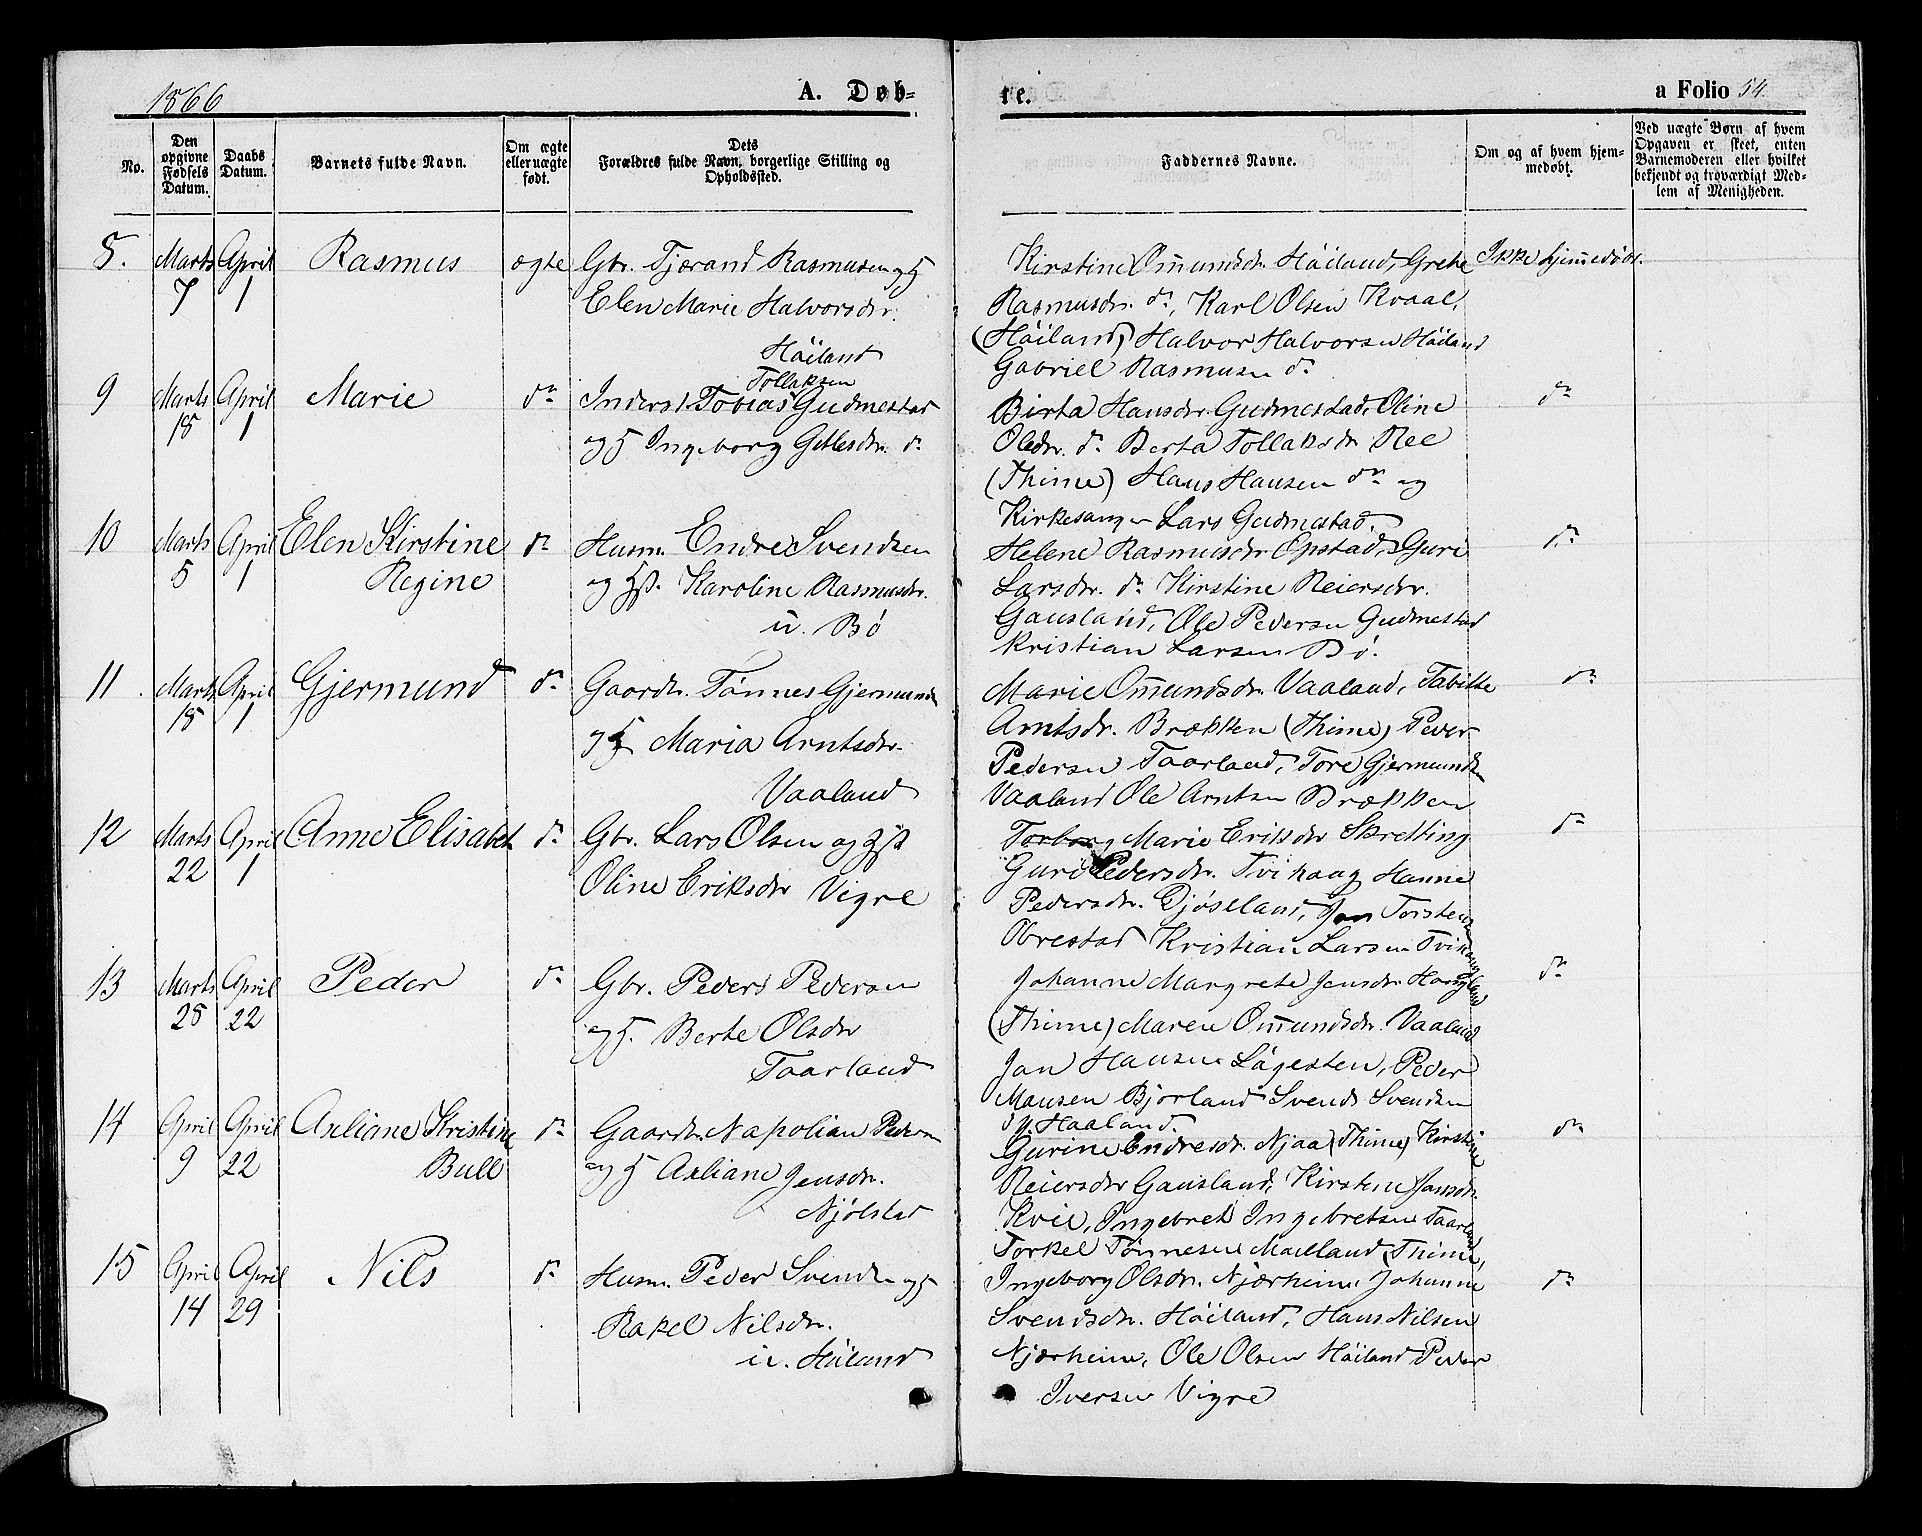 1866
A. Døb-
te.
a Folio 54
No.
Den opgivne Fødsels Datum.
Daabs Datum.
Barnets fulde Navn.
Om ægte eller uægte født.
Dets Forældres fulde Navn, borgerlige Stilling og Opholdssted.
Faddernes Navne.
Om og af hvem hjemmedøbt.
Ved uægte Børn af hvem Opgaven er skeet, enten Barnemoderen eller hvilket bekjendt og troværdigt Medlem af Menigheden.
8. Marts 7 April 1 Rasmus ægte
Gbr. Tjærand Rasmusen og H
Elen Marie Halvorsdr.
Höiland
Kirstine Omundsdr. Höiland, Grete
Rasmusdr. do, Karl Olsen Kvaal,
(Höiland) Halvor Halvorsen Höiland
Gabriel Rasmusen do
Ikke hjemmedöbt.
9 Marts 18 April 1 Marie do
Tollaksen
Inderst. Tobias Gudmestad
og H Ingeborg Gitlesdr. do
Birta Hansdr. Gudmestad, Oline
Olsdr. do Berta Tollaksdr. Ree
(Thime) Hans Hansen do og
Kirkesanger Lars Gudmestad.
do
10 Marts 5 April 1 Elen Kirstine
Regine do
Husm. Endre Svendsen
og Hst. Karoline Rasmusdr.
u. Bø
Helene Rasmusdr. Opstad, Guri
Larsdr. do Kirstine Reiersdr.
Gausland, Ole Pedersen Gudmestad
Kristian Larsen Bø.
do
11. Marts 18 April 1 Gjermund do
Gaardm. Tönnes Gjermunds
og H Maria Arntsdr.
Vaaland
Marie Omundsdr. Vaaland, Tabitte
Arntsdr. Brækken (Thime) Peder
Pedersen Taarland, Tore Gjermunds
Vaaland Ole Arntsen Brækken
do
12 Marts 22 April 1 Anne Elisabet do
Gbr. Lars Olsen og Hst
Oline Eriksdr. Vigre
Torborg Marie Eriksdr. Skretting
Guri Pedersdr. Tvihaug Hanne
Pedersdr. Djösland, Jon Torstens
Obrestad Kristian Larsen Tvihaug
do
13 Marts 28 April 22 Peder do
Gbr. Peders Pedersen
og H. Berte Olsdr.
Taarland
Johanne Margrete Jensdr. Haugland
(Thime) Maren Omundsdr. Vaaland
Jan Hansen Lögesten, Peder
Mausen Bjorland Svends Svendsen
N. Haaland.
do
14 April 9 April 22 Axliane Kristine
Bull do
Gaardm. Napolian Peders
og H Axliane Jensdr.
Njölstad
Gurine Endresdr. Njaa (Thime) Kirstine
Reiersdr. Gausland, Kirstine Jansdr.
Kvie, Ingebret Ingebretsen Taarland
Torkel Tönnesen Mælland (Thime,
do
15 April 14 April 29 Nils do
Husm. Peder Svends. og H
Rakel Nilsdr.
u. Höiland
Ingeborg Olsdr. Njærheim, Johanne
Svendsdr. Höiland, Hans Nilsen
Njærheim, Ole Olsen Höiland Peder
Iversen Vigre
do